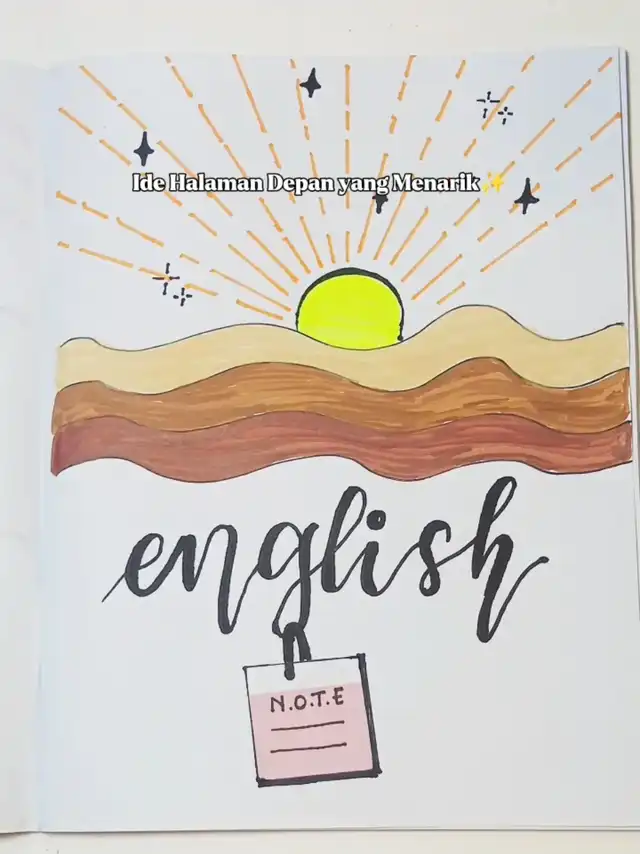 Ide Halaman Depan yang Menarik✨
english
N.O.T.E